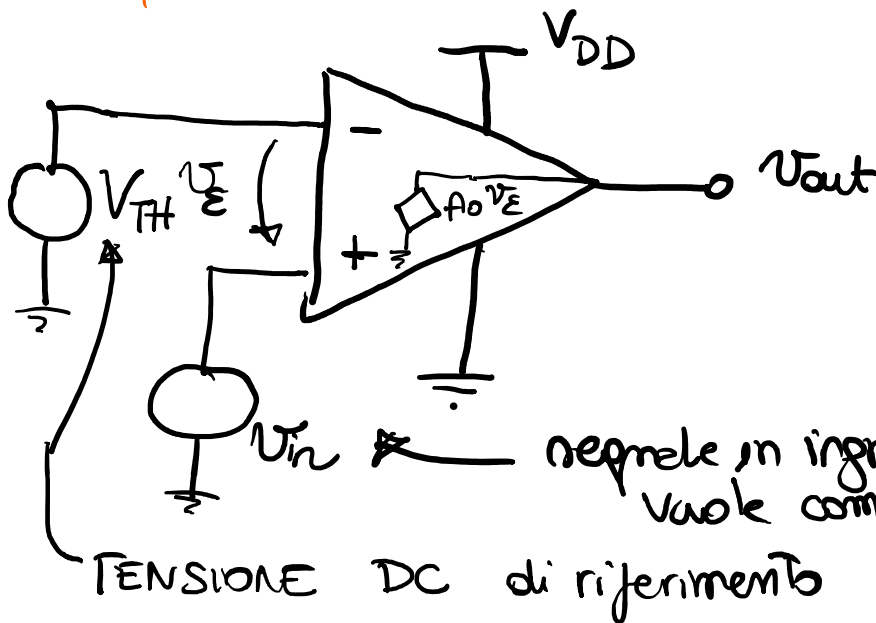 V_DD
−
V_TH v_ε
A₀v_ε
v_out
+
v_in
segnale in ingr
vuole com
TENSIONE DC di riferimento